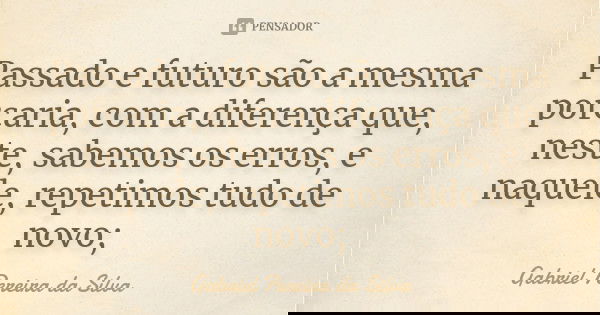 PENSADOR
Passado e futuro são a mesma
porcaria, com a diferença que,
neste, sabemos os erros, e
naquele, repetimos tudo de
novo;
Gabriel Pereira da Silva